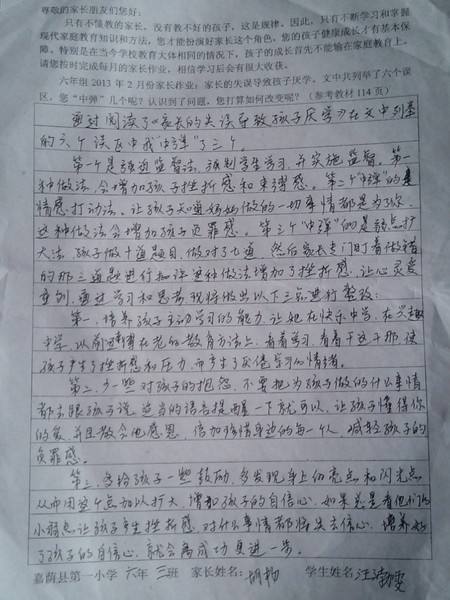 尊敬的家长朋友们您好：
只有不懂教的家长，没有教不好的孩子，这是规律。因此，只有不断学习和掌握
现代家庭教育知识和方法，您才能扮演好家长这个角色，您的孩子健康成长才有基本保
障。特别是在当今学校教育大体相同的情况下，孩子的成长首先不能输在家庭教育上。
请您按时完成每月的家长作业，相信学习后会有很大收获。
六年组 2013 年 2 月份家长作业：家长的失误导致孩子厌学，文中共列举了六个误
区，您“中弹”几个呢？认识到了问题，您打算如何改变呢？（参考教材 114 页）
通过阅读了《家长的失误导致孩子厌学》在文中列举
的六个误区中我“中弹”了三个。
第一个是强迫监督法，强制学生学习，并实施监督。第一
种做法，会增加孩子挫折感和束缚感。第二个“中弹”的是
情感打动法。让孩子知道妈妈做的一切事情都是为你，
这种做法会增加孩子负罪感。第三个“中弹”的是弱点扩
大法，孩子做十道题目，做对了七道，然后家长专门盯着做错
的那三道题进行批评这种做法增加了挫折感，让心灵受
重创，通过学习和思考现将做出以下三点进行整改：
第一，培养孩子主动学习的能力，让她在快乐中学，在兴趣
中学，以前过
在老的教育方法上，看着学习，看着干这干那，使
孩子产生了挫折感和压力，而产生了厌倦学习的情绪。
第二，少一些对孩子的抱怨，不要把为孩子做的什么事情
都去跟孩子说，适当的语言提醒一下就可以，让孩子懂得你
的爱，并且教会他感恩，倍加珍惜身边的每一个人，减轻孩子的
负罪感。
第三，多给孩子一些鼓励，多发现身上的亮点和闪光点
从而因这个点加以扩大，增加孩子的自信心，如果总是看他们的
小弱点让孩子产生挫折感，对什么事情都将失去信心，培养好
了孩子的自信心，就会离成功更进一步。
嘉荫县第一小学 六年 三班 家长姓名： 学生姓名：汪